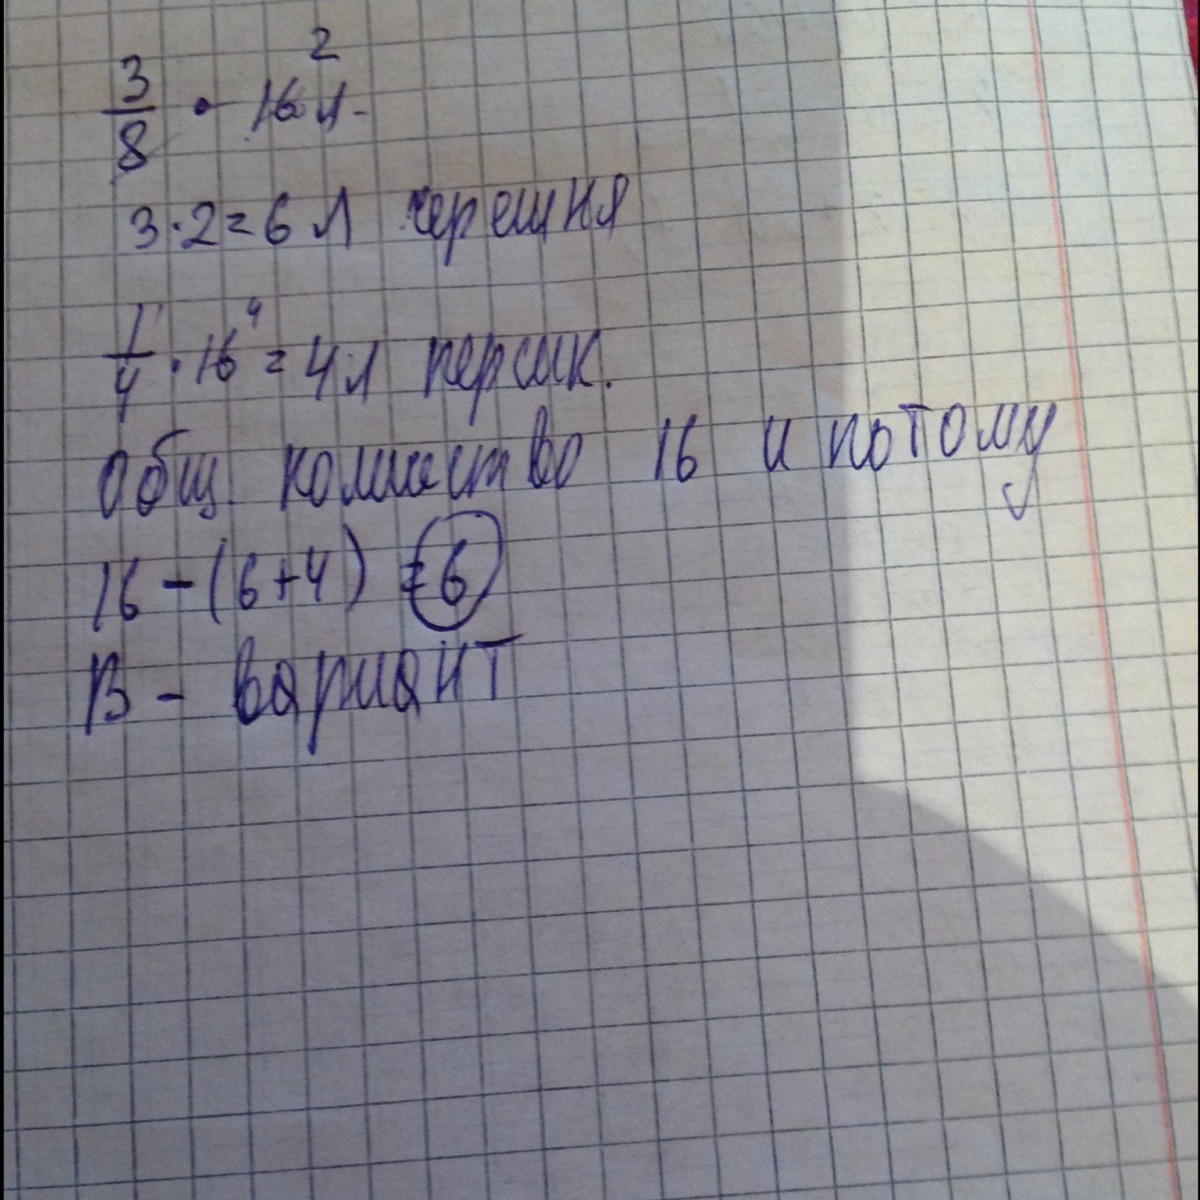 2
3/8 · 16 л.
3·2=6 л черешня
1/4 · 16 ⁴ = 4 л персик.
Общ. количество 16 и потому
16 - (6+4) = 6
В - вариант